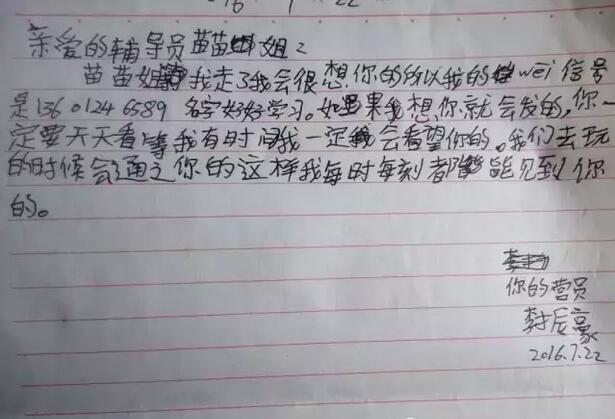 16 1 22
亲爱的辅导员苗苗姐:
苗苗姐我走了我会很想你的所以我的wei信号
是136 0124 6589 名字好好学习。如果我想你就会发的,你一
定要天天看等我有时间我一定会看望你的。我们去玩
的时候会通之你的这样我每时每刻都能见到你
的。
你的营员
李辰豪
2016.7.22